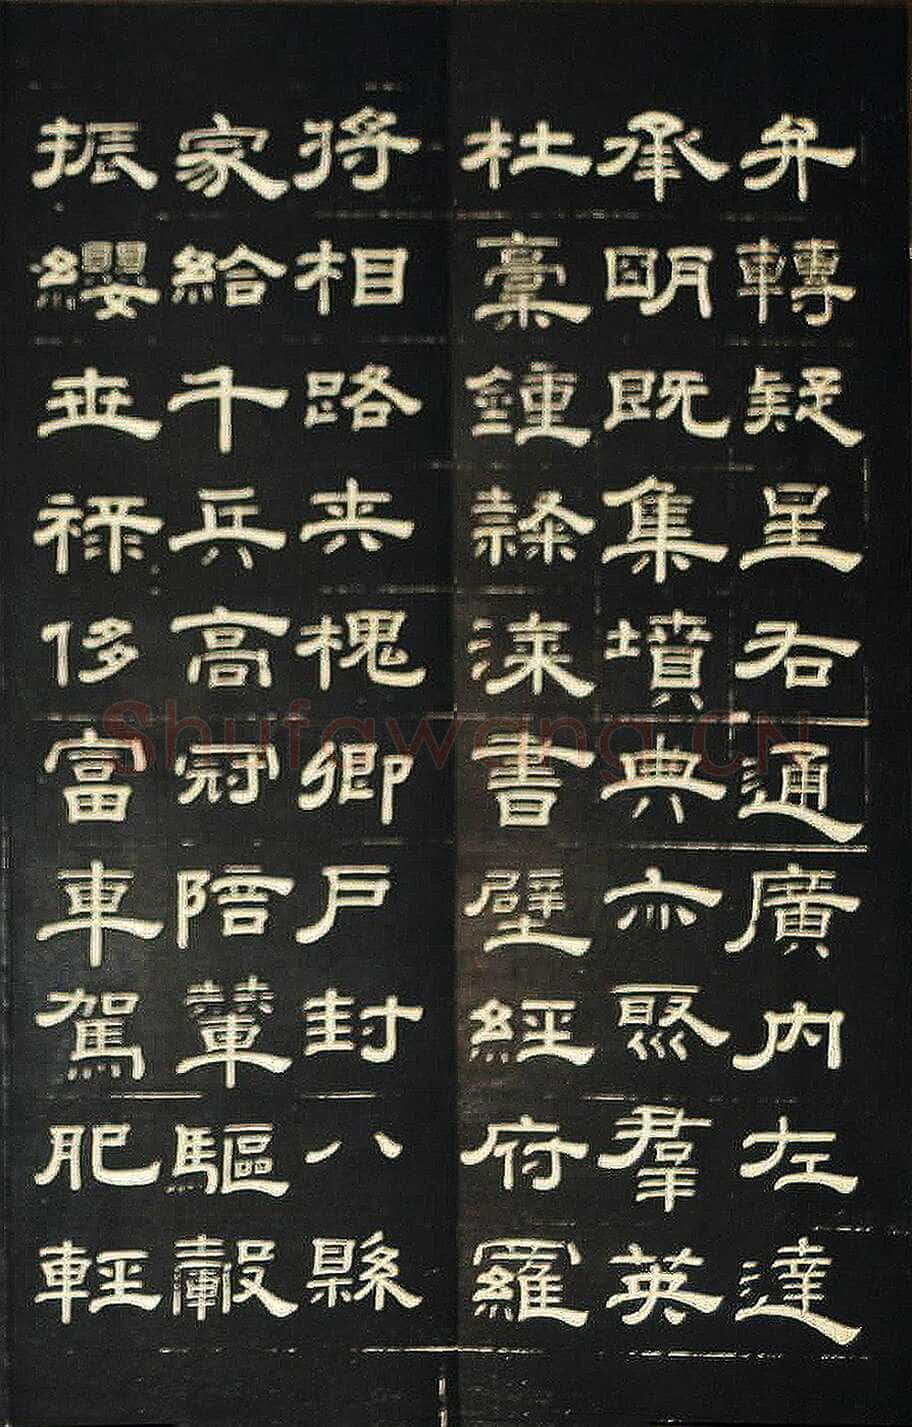 弁轉疑呈右通廣内左達
承明既集墳典亦聚群英
杜稾鍾隸漆書壁經府羅
將相路夾槐卿戶封八縣
家給千兵高冠陪輦驅轂
振纓世祿侈富車駕肥輕
Shufawang.CN